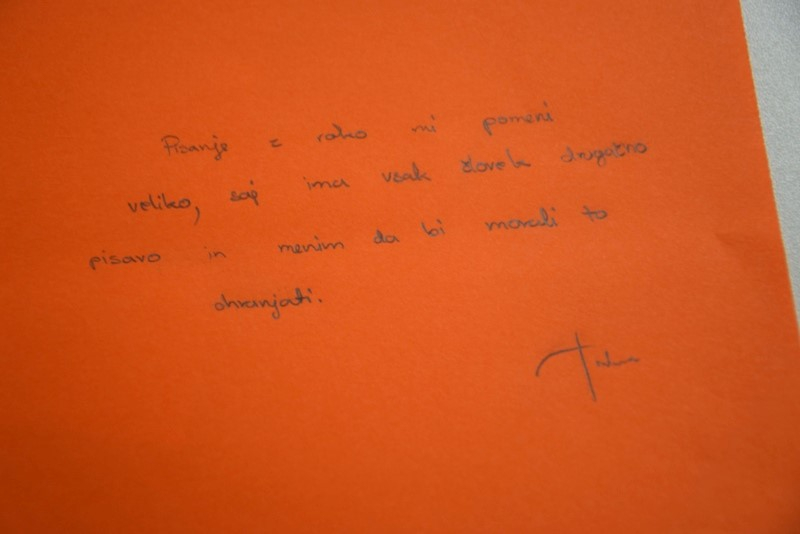 Pisanje z roko mi pomeni
veliko, saj ima vsak človek drugačno
pisavo in menim da bi morali to
ohranjati.